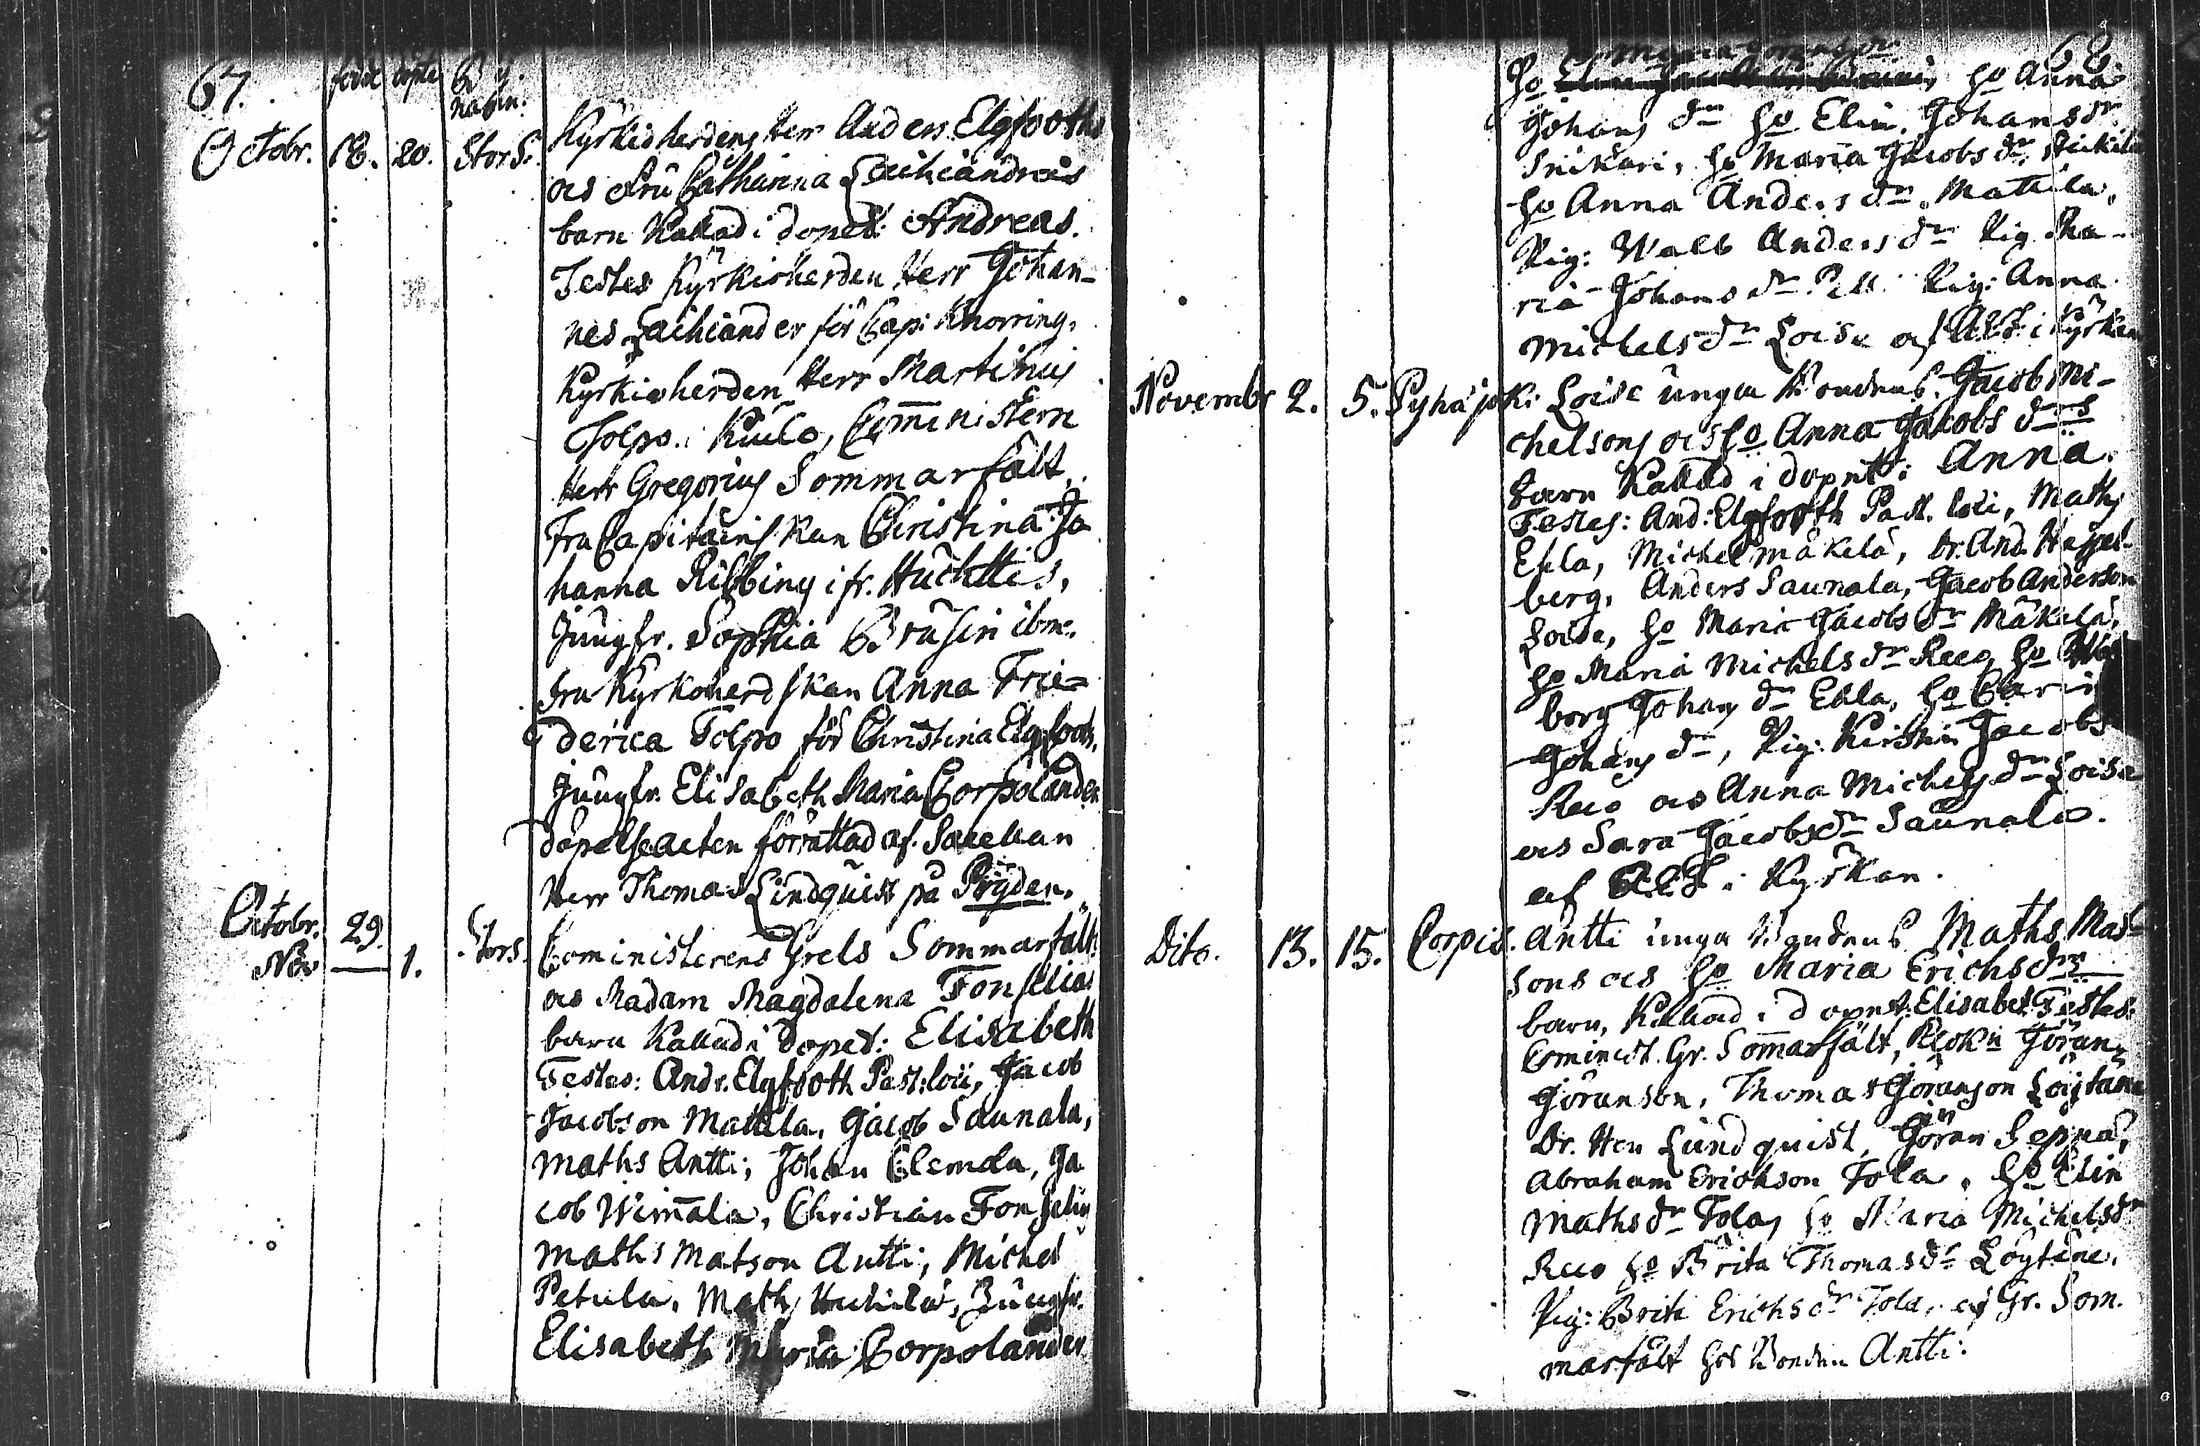 67.
född döpte By
namn.
Octobr. 18. 20. StorS. Kyrkioherdens Herr Anders Elgfooths
och Fru Catharina Zaihiandras
barn Kallad i dopet: Andreas.
Testes Kyrkioherden Herr Johan-
nes Zaihiander för Cap: Knorring,
Kyrkioherden Herr Martinus
Tolpo i Kiulo, Com̅inistern
Herr Gregorius Sommarfält,
Fru Capitainskan Christina Jo
hanna Ribbing ifr. Huchttis,
Jungfr. Sophia Brusin ibm.
fru Kyrkoherdskan Anna Frie-
derica Tolpo för Christina Elgfooth,
Jungfr. Elisabeth Maria Corpolander
döpelseacten förrättad af
Herr Thomas Lindquist på Pÿden.
Octobr. 29.
Nov. — 1. Stors. Cominísterens Grels Sommarfälts
och Madam Magdalena Fonselias
barn Kallad i dopet: Elisabeth
Testes: Andr. Elgfooth Past: loci, Jacob
Jacobson Mattila, Jacob Saunala,
Maths Antti, Johan Clemola, Ja
cob Wim̅ala, Christian Fonselius
Maths Matson Antti, Michel
Petula, Maths Huhila, Jungfr.
Elisabeth Maria Corpolander
68
Ho Ho Anna
Johans dr Ho Elin Johans dr
Snikari, Ho Maria Jacobs dr,
Ho Anna Anders dr Mattila,
Pig: Walb Anders dr Pig. Ma-
ria Johans dr Pig: Anna
Michels dr Loise af i Kyrkan
Novembr 2. 5. Pyhäjok: Loise unga Bondens Jacob Mi-
chelsons och Ho Anna Jacobs drs
barn Kallad i dopet: Anna.
Testes: And: Elgfooth Past. loci, Maths
Ehla, Michel Mäkelä, Dr. And. Hassel-
berg, Anders Saunala, Jacob Anderson
Loise, Ho Maria Jacobs dr Mäkelä,
Ho Maria Michels dr Reco, Ho Wal
borg Johans dr Ehla, Ho Carin
Johans dr, Pig: Kirstin Jacobs
Reco och Anna Michels dr Loise
och Sara Jacobs dr Saunala.
af i Kyrkan.
Dito. 13. 15. Corpis. Antti unga Bondens Maths Mat-
sons och Ho Maria Erichs drs
barn, Kallad i dopet: Elisabet. Testes:
Cominist. Gr. Som̅arfält, Klokn Göran
Göranson, Thomas Göranson Löytäne
Dr. Hen Lundquist, Göran Seppä,
Abraham Erichson Tola, Ho Elin
Maths dr Tola, Ho Maria Michels dr
Reco Ho Brita Thomas dr Löytäne,
Pig: Brita Erichs dr Tola, af Gr. Som-
marfält hos Bonden Antti.